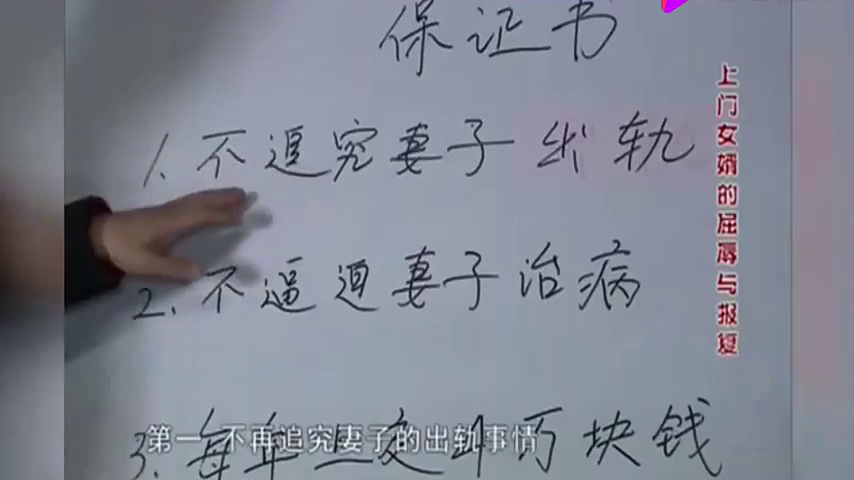 保证书
1. 不追究妻子出轨
2. 不逼迫妻子治病
3. 每年上交4万块钱
第一 不再追究妻子的出轨事情
上门女婿的屈辱与报复